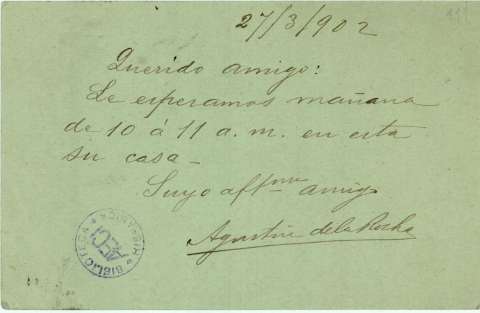 27/3/902
Querido amigo:
Le esperamos mañana
de 10 á 11 a. m. en esta
su casa -
Suyo affmo amigo
Agustin de la Rocha
BIBLIOTECA HISPANICA